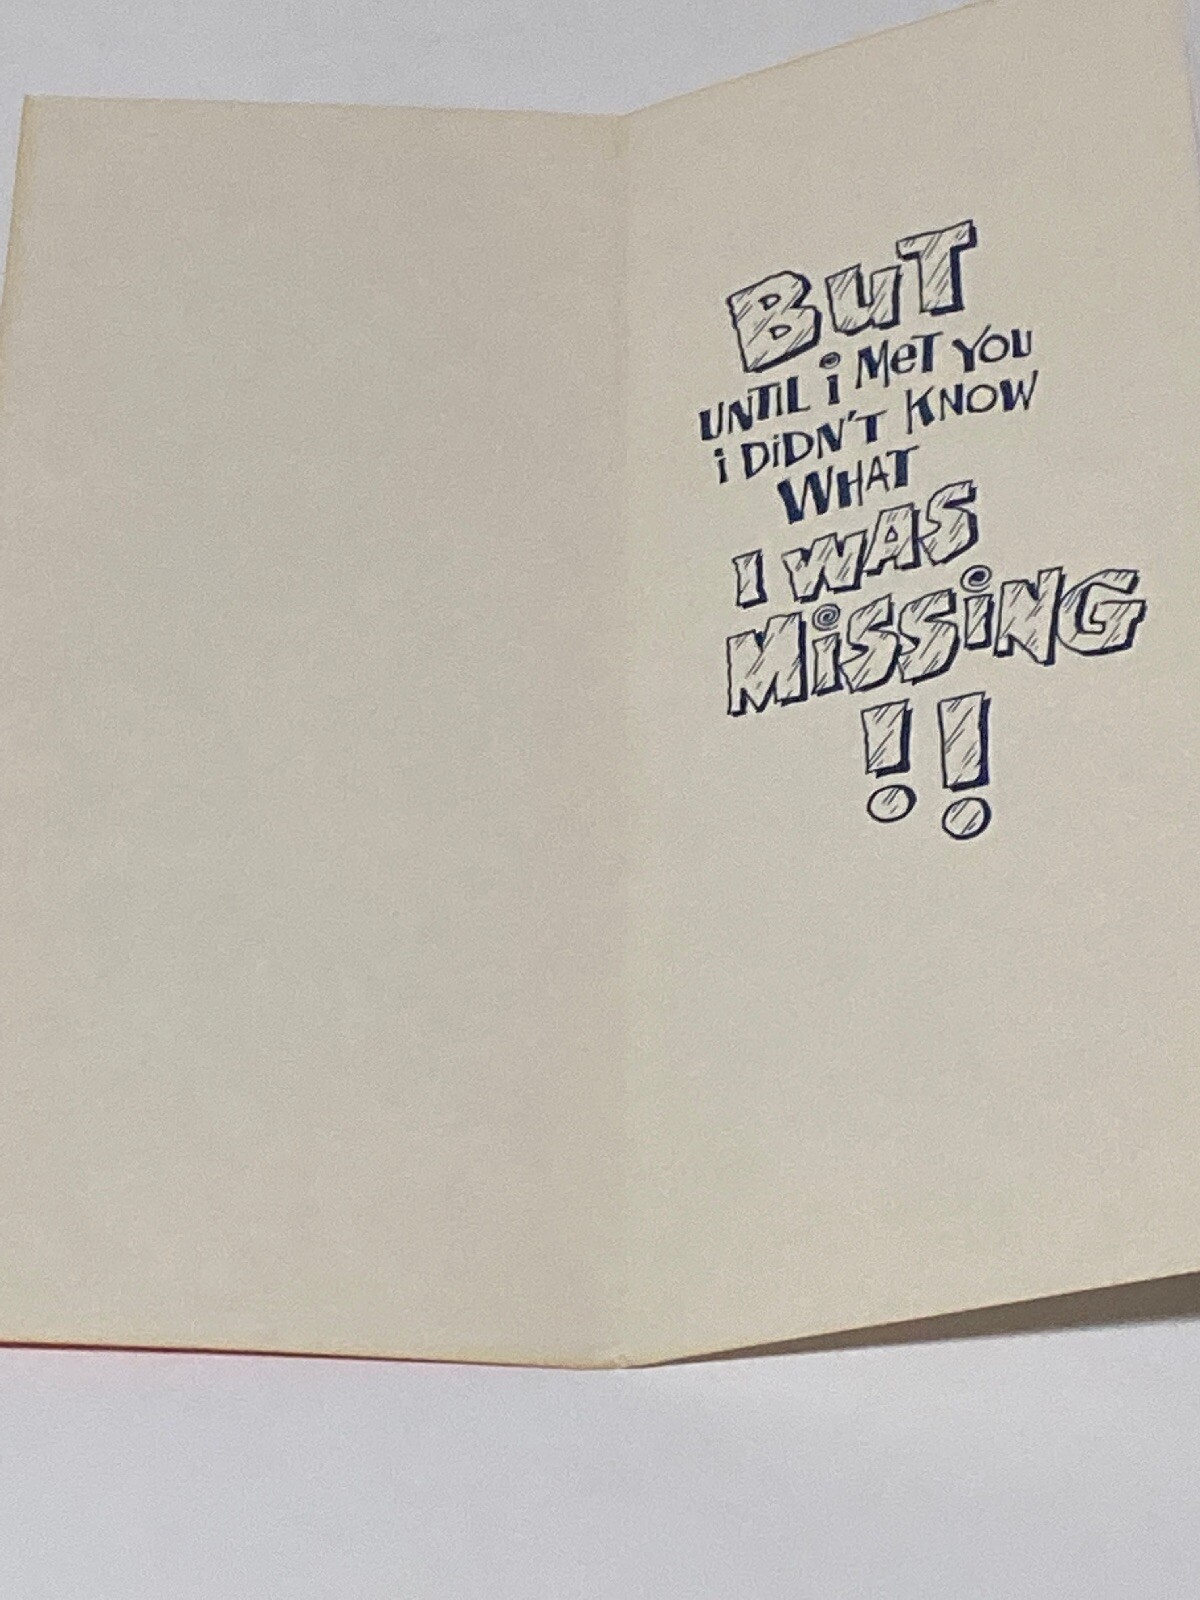 BuT
UNTIL i MeT YOU
i DiDN'T KNOW
WHAT
I WAS
MiSSiNG
!!